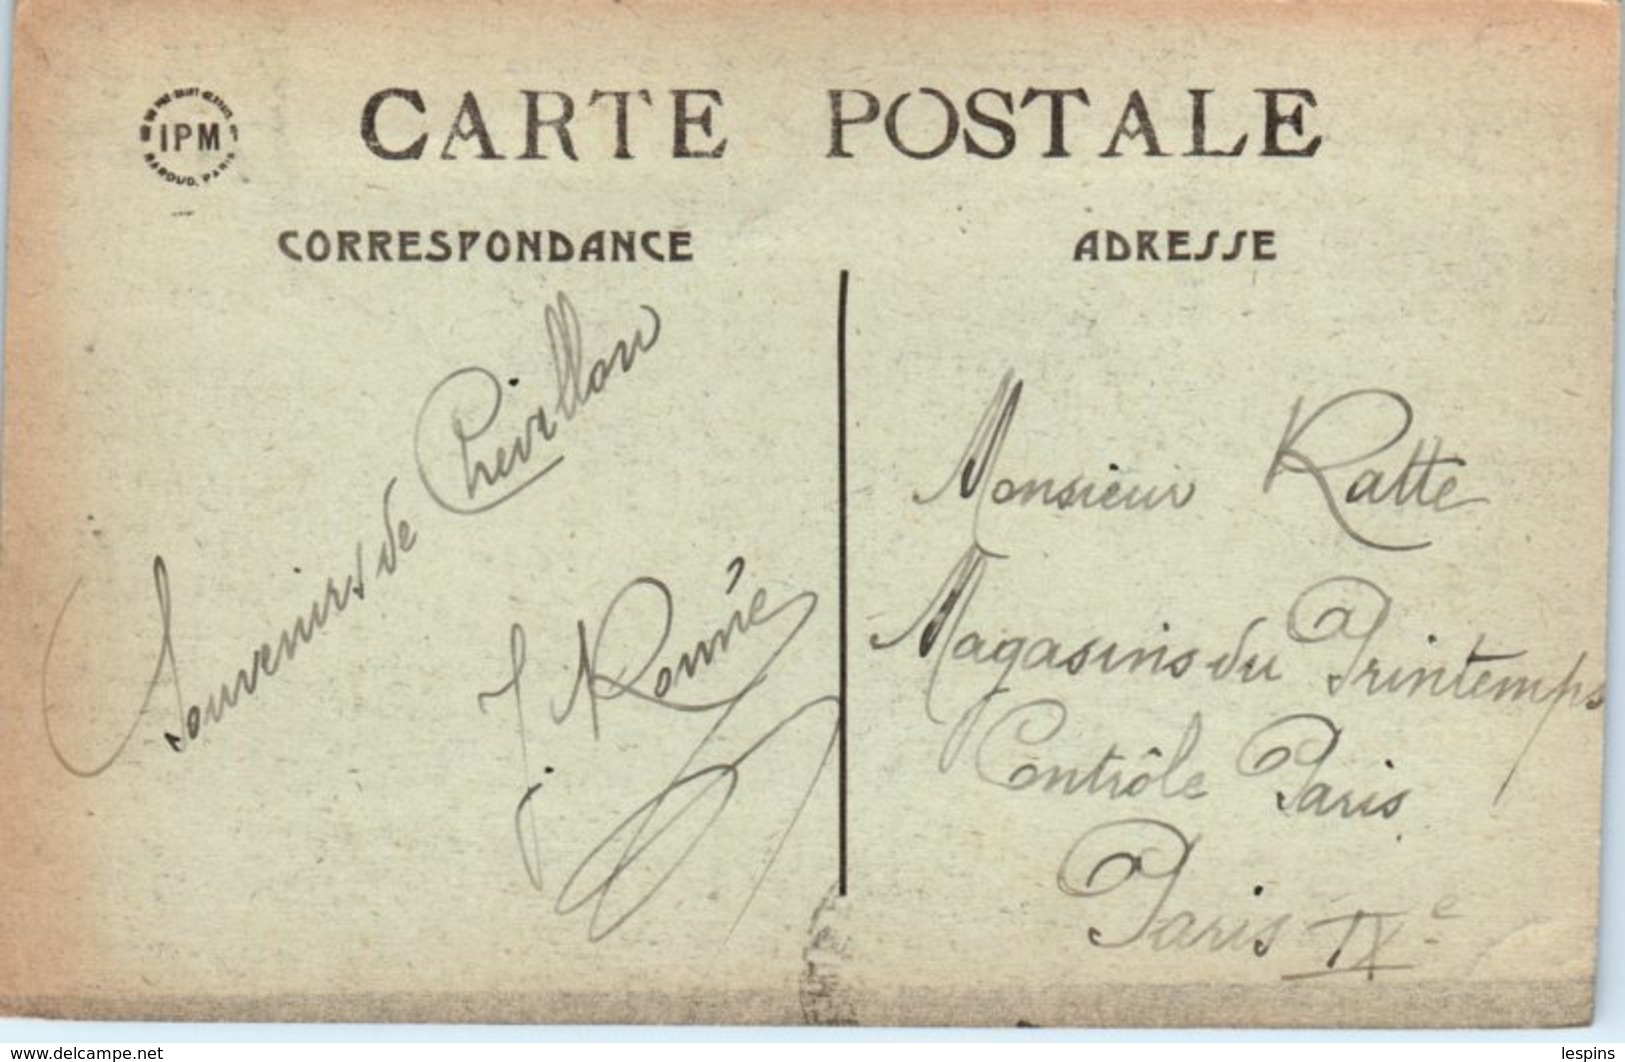 CARTE POSTALE
IPM
BAROUD, PARIS
CORRESPONDANCE
ADRESSE
Souvenirs de Chevillon
Monsieur Ratte
Magasins du Printemps
Contrôle Paris
Paris IXe
delcampe.net
lespins